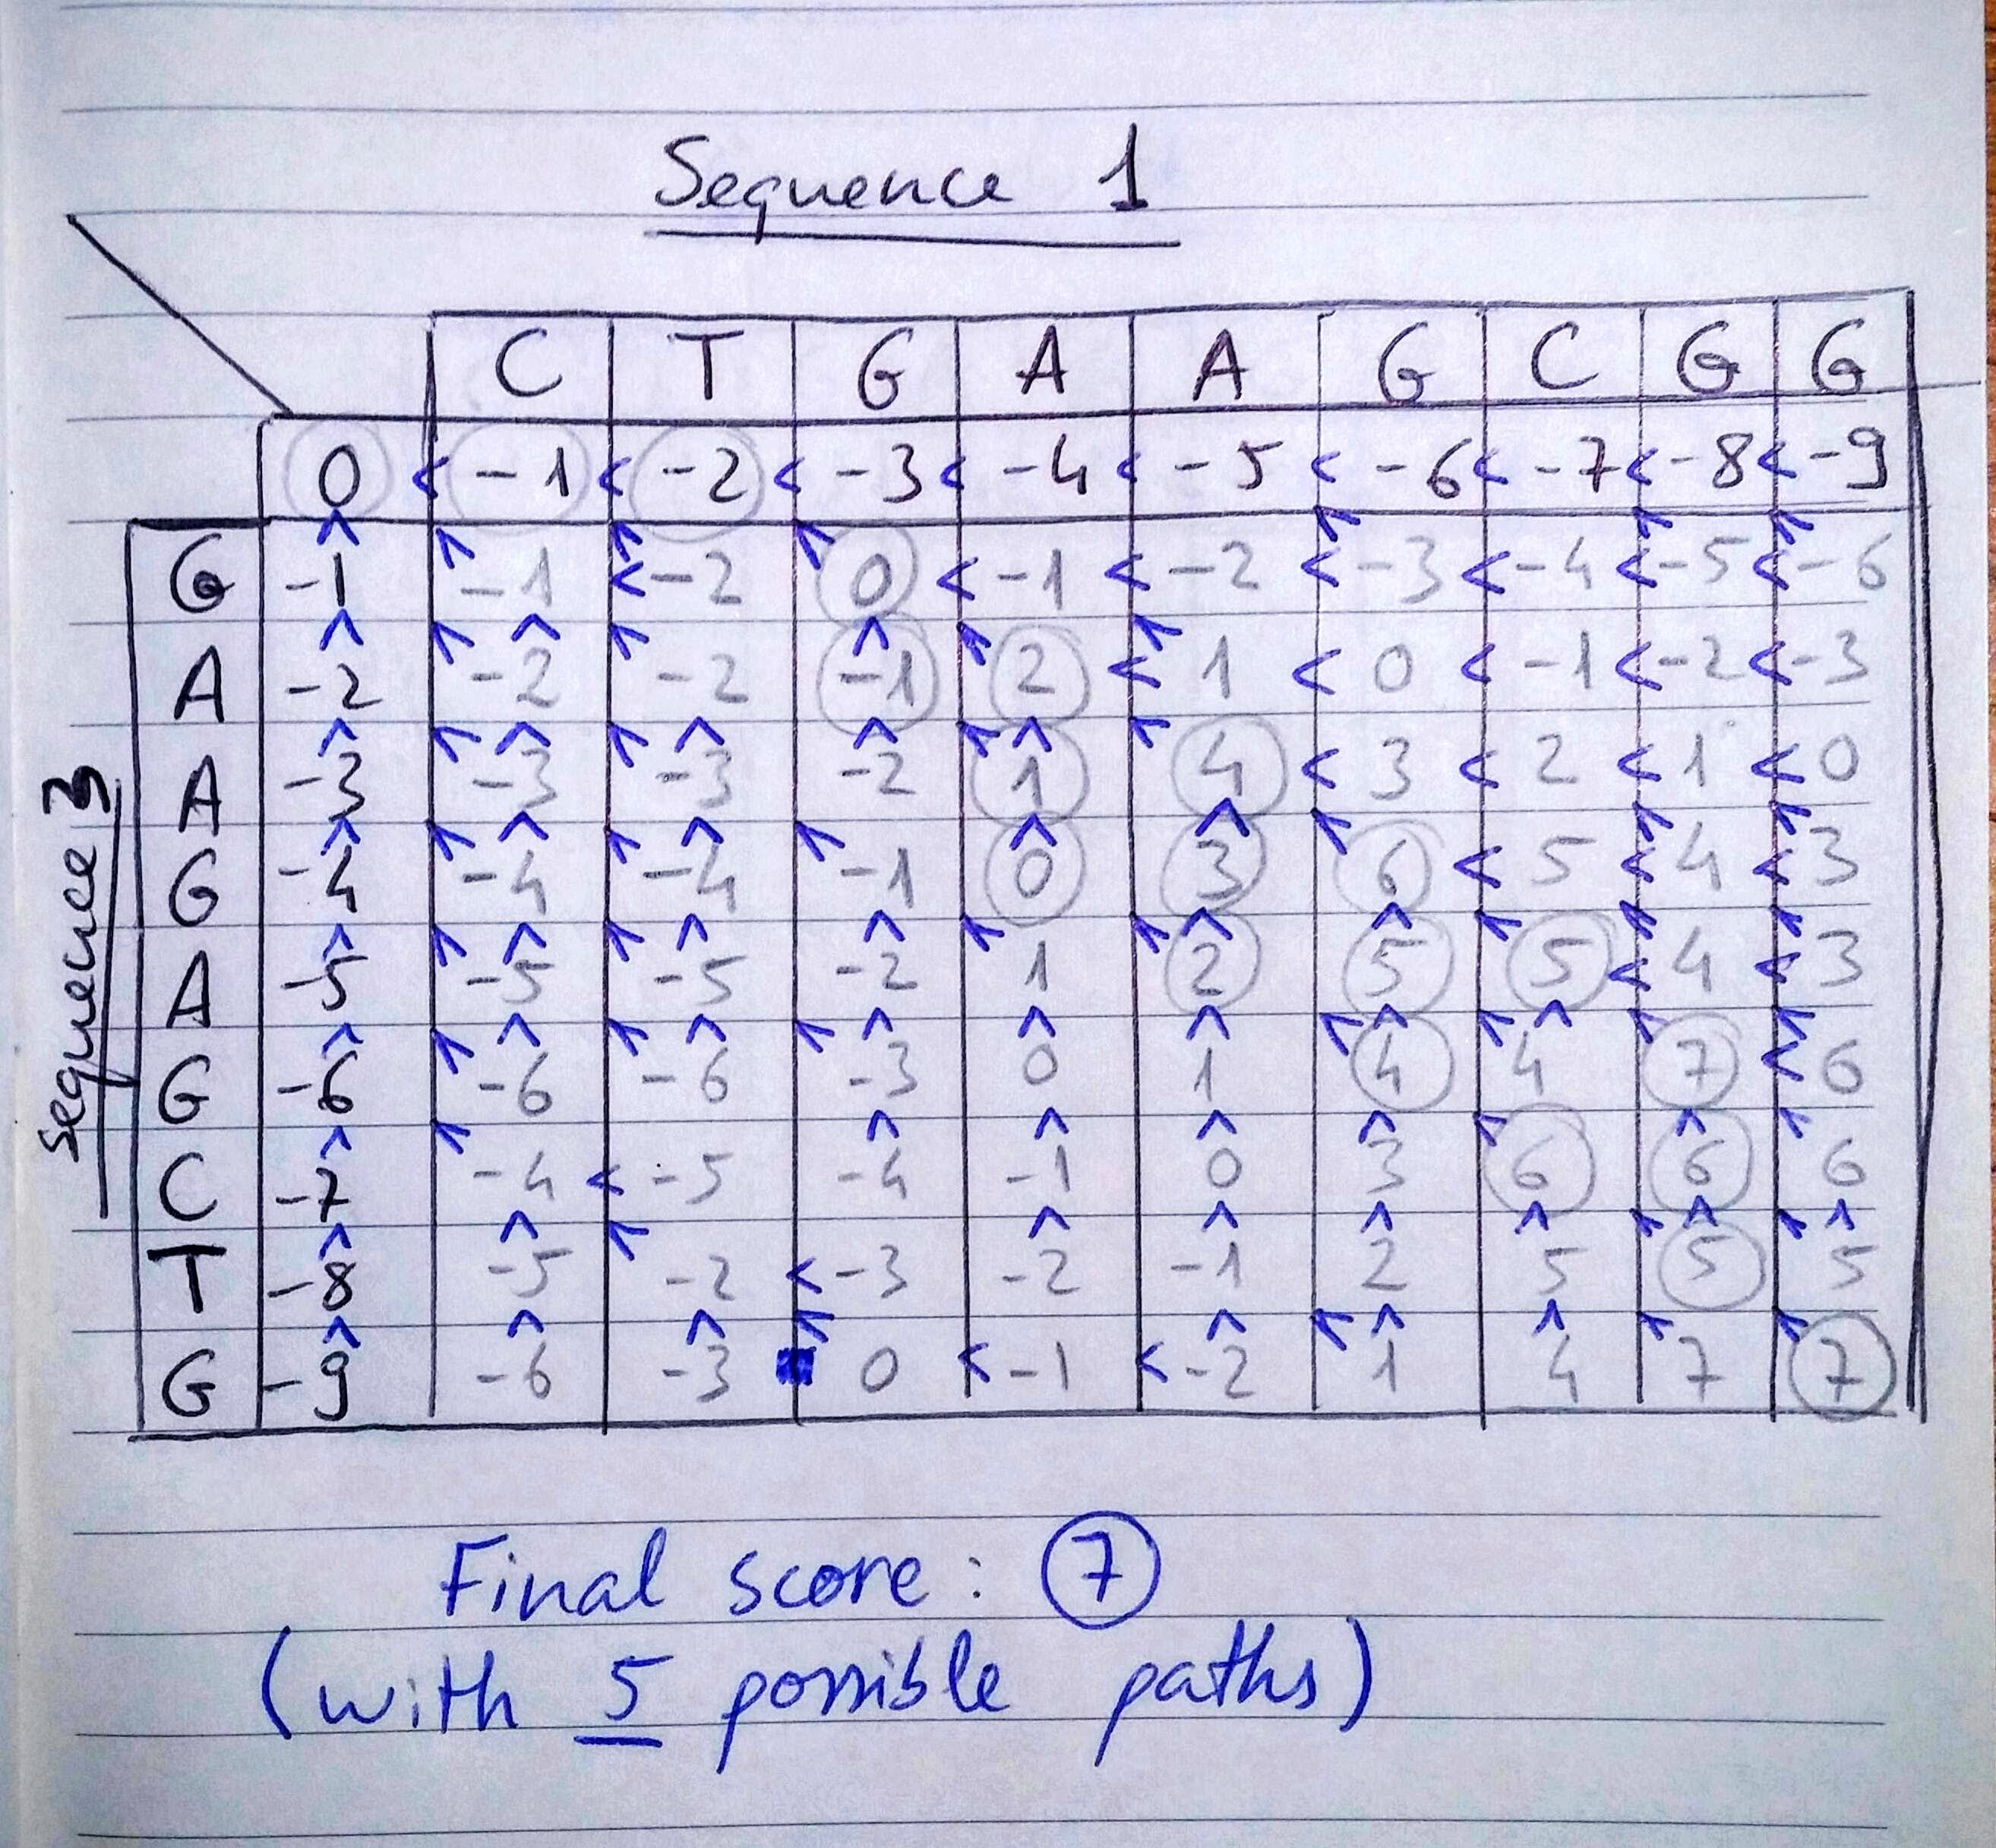 Sequence 1
C T G A A G C G G
0 < -1 < -2 < -3 < -4 < -5 < -6 < -7 < -8 < -9
G -1 -1 < -2 0 < -1 < -2 < -3 < -4 < -5 < -6
A -2 -2 -2 -1 2 < 1 < 0 < -1 < -2 < -3
A -3 -3 -3 -2 1 4 < 3 < 2 < 1 < 0
G -4 -4 -4 -1 0 3 6 < 5 < 4 < 3
A -5 -5 -5 -2 1 2 5 5 < 4 < 3
G -6 -6 -6 -3 0 1 4 4 7 < 6
C -7 -4 < -5 -4 -1 0 3 6 6 6
T -8 -5 -2 < -3 -2 -1 2 5 5 5
G -9 -6 -3 0 < -1 < -2 1 4 7 7
Sequence 3
Final score: 7
(with 5 possible paths)